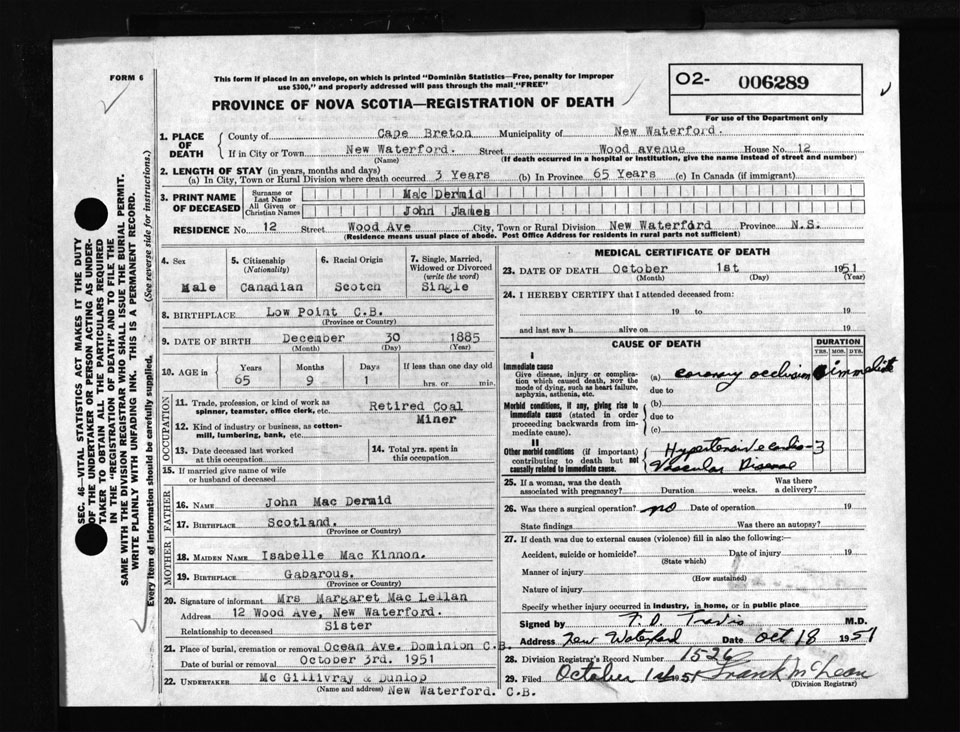 FORM 6
This form if placed in an envelope, on which is printed "Dominion Statistics—Free, penalty for improper
use $300," and properly addressed will pass through the mail "FREE"
O2- 006289
For use of the Department only
PROVINCE OF NOVA SCOTIA—REGISTRATION OF DEATH
SEC. 46—VITAL STATISTICS ACT MAKES IT THE DUTY
OF THE UNDERTAKER OR PERSON ACTING AS UNDER-
TAKER TO OBTAIN ALL THE PARTICULARS REQUIRED
IN THE "REGISTRATION OF DEATH" AND TO FILE THE
SAME WITH THE DIVISION REGISTRAR WHO SHALL ISSUE THE BURIAL PERMIT.
WRITE PLAINLY WITH UNFADING INK. THIS IS A PERMANENT RECORD.
Every item of information should be carefully supplied. (See reverse side for instructions.)
1. PLACE OF DEATH County of Cape Breton Municipality of New Waterford.
If in City or Town New Waterford. Street Wood avenue House No. 12
(Name) (If death occurred in a hospital or institution, give the name instead of street and number)
2. LENGTH OF STAY (in years, months and days)
(a) In City, Town or Rural Division where death occurred 3 Years (b) In Province 65 Years (c) In Canada (if immigrant)
3. PRINT NAME OF DECEASED Surname or Last Name Mac Dermid
All Given or Christian Names John James
RESIDENCE No. 12 Street Wood Ave City, Town or Rural Division New Waterford Province N.S.
(Residence means usual place of abode. Post Office Address for residents in rural parts not sufficient)
4. Sex 5. Citizenship (Nationality) 6. Racial Origin 7. Single, Married, Widowed or Divorced (write the word)
Male Canadian Scotch Single
8. BIRTHPLACE Low Point C.B.
(Province or Country)
9. DATE OF BIRTH December 30 1885
(Month) (Day) (Year)
10. AGE in Years Months Days If less than one day old
65 9 1 hrs. or min.
OCCUPATION
11. Trade, profession, or kind of work as spinner, teamster, office clerk, etc. Retired Coal
12. Kind of industry or business, as cotton-mill, lumbering, bank, etc. Miner
13. Date deceased last worked at this occupation 14. Total yrs. spent in this occupation
15. If married give name of wife or husband of deceased
FATHER
16. NAME John Mac Dermid
17. BIRTHPLACE Scotland.
(Province or Country)
MOTHER
18. MAIDEN NAME Isabelle Mac Kinnon.
19. BIRTHPLACE Gabarous.
(Province or Country)
20. Signature of informant Mrs Margaret Mac Lellan
Address 12 Wood Ave, New Waterford.
Relationship to deceased Sister
21. Place of burial, cremation or removal Ocean Ave. Dominion C.B.
Date of burial or removal October 3rd. 1951
22. UNDERTAKER Mc Gillivray & Dunlop
(Name and address) New Waterford. C.B.
MEDICAL CERTIFICATE OF DEATH
23. DATE OF DEATH October 1st 1951
(Month) (Day) (Year)
24. I HEREBY CERTIFY that I attended deceased from:
19 to 19
and last saw h alive on 19
CAUSE OF DEATH DURATION
YRS. MOS. DYS.
I
Immediate cause
Give disease, injury or complication which caused death, NOT the mode of dying, such as heart failure, asphyxia, asthenia, etc.
(a) coronary occlusion immediate
due to
Morbid conditions, if any, giving rise to immediate cause (stated in order proceeding backwards from immediate cause).
(b)
due to
(c)
II
Other morbid conditions (if important) contributing to death but not causally related to immediate cause.
Hypertensive cardio- 3
Vascular Disease
25. If a woman, was the death associated with pregnancy? Duration weeks. Was there a delivery?
26. Was there a surgical operation? no Date of operation 19
State findings Was there an autopsy?
27. If death was due to external causes (violence) fill in also the following:—
Accident, suicide or homicide? Date of injury 19
(State which)
Manner of injury
(How sustained)
Nature of injury
Specify whether injury occurred in industry, in home, or in public place
Signed by T. D. Travis M.D.
Address New Waterford Date Oct 18 1951
28. Division Registrar's Record Number 1526
29. Filed October 1951 Frank McLean
(Division Registrar)